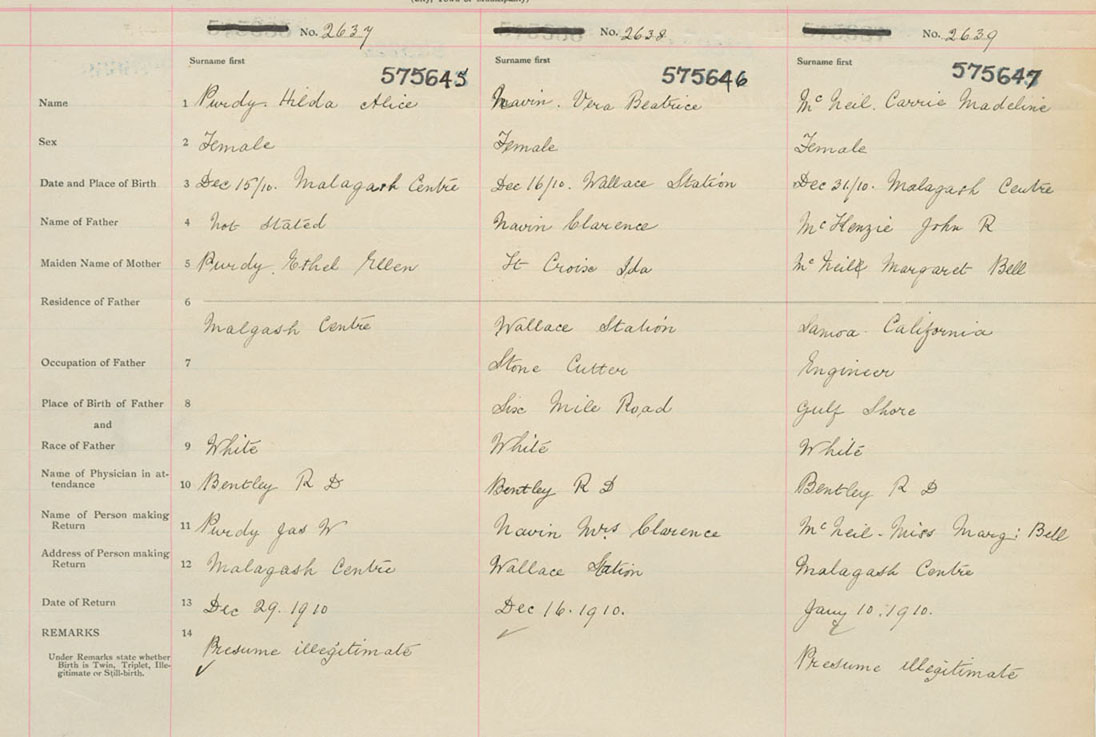 No. 2637
No. 2638
No. 2639
Surname first
Surname first
Surname first
575645
575646
575647
Name 1 Purdy. Hilda Alice
Navin. Vera Beatrice
Mc Neil. Carrie Madeline
Sex 2 Female
Female
Female
Date and Place of Birth 3 Dec 15/10. Malagash Centre
Dec 16/10. Wallace Station
Dec 31/10. Malagash Centre
Name of Father 4 Not Stated
Navin Clarence
McKenzie John R
Maiden Name of Mother 5 Purdy. Ethel Ellen
St Croise Ida
Mc Neill Margaret Bell
Residence of Father 6
Malgash Centre
Wallace Station
Samoa California
Occupation of Father 7
Stone Cutter
Engineer
Place of Birth of Father 8
Six Mile Road
Gulf Shore
and
Race of Father 9 White
White
White
Name of Physician in at-
tendance 10 Bentley R D
Bentley R D
Bentley R D
Name of Person making
Return 11 Purdy Jas W
Navin Mrs Clarence
Mc Neil - Miss Marg: Bell
Address of Person making
Return 12 Malagash Centre
Wallace Station
Malagash Centre
Date of Return 13 Dec 29. 1910
Dec 16. 1910.
Jany 10. 1910.
REMARKS 14
Presume illegitimate
Presume illegitimate
Under Remarks state whether
Birth is Twin, Triplet, Ille-
gitimate or Still-birth.